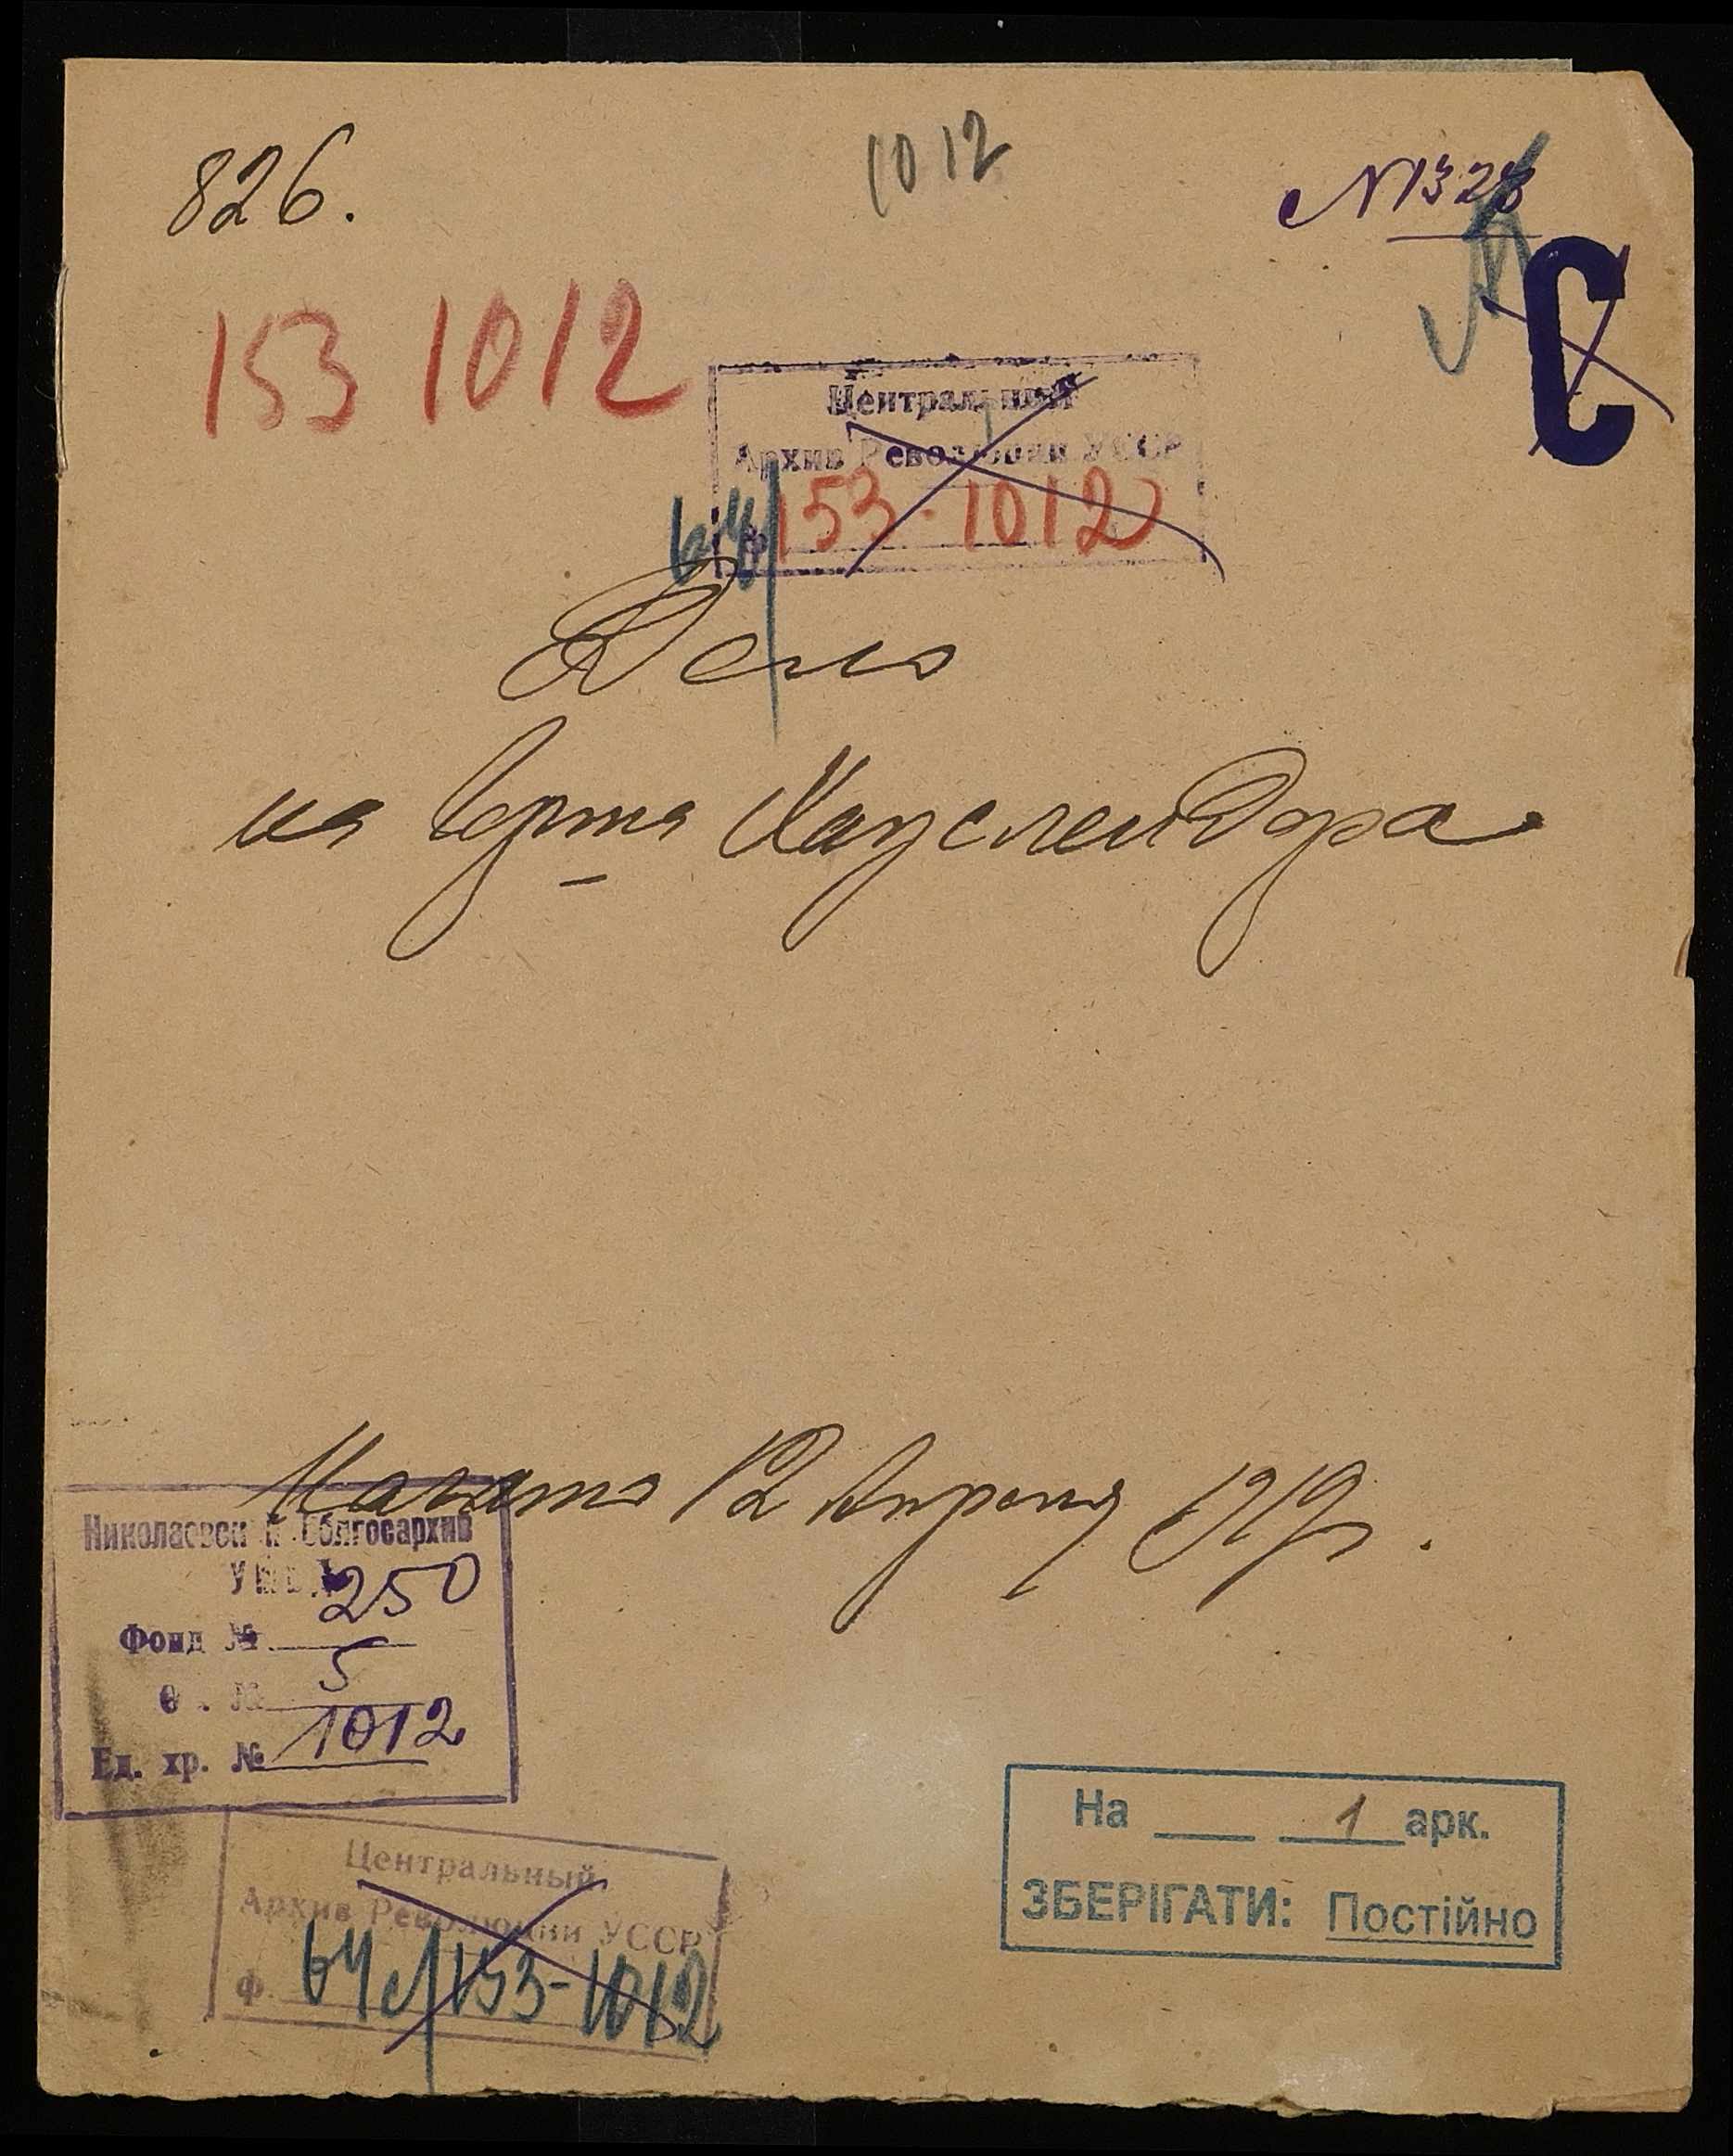 826.
1012
№ 1328
С
153 1012
Центральный
Архив Революции УССР
Ф 153-1012
64
Дело
на Хауслендра
Начато 12 Апреля 1919.
Николаевский Облгосархив
250
Фонд №
о . № 5
Ед. хр. № 1012
Центральный
Архив Революции УССР
Ф. 64с/153-1012
На 1 арк.
ЗБЕРІГАТИ: Постійно